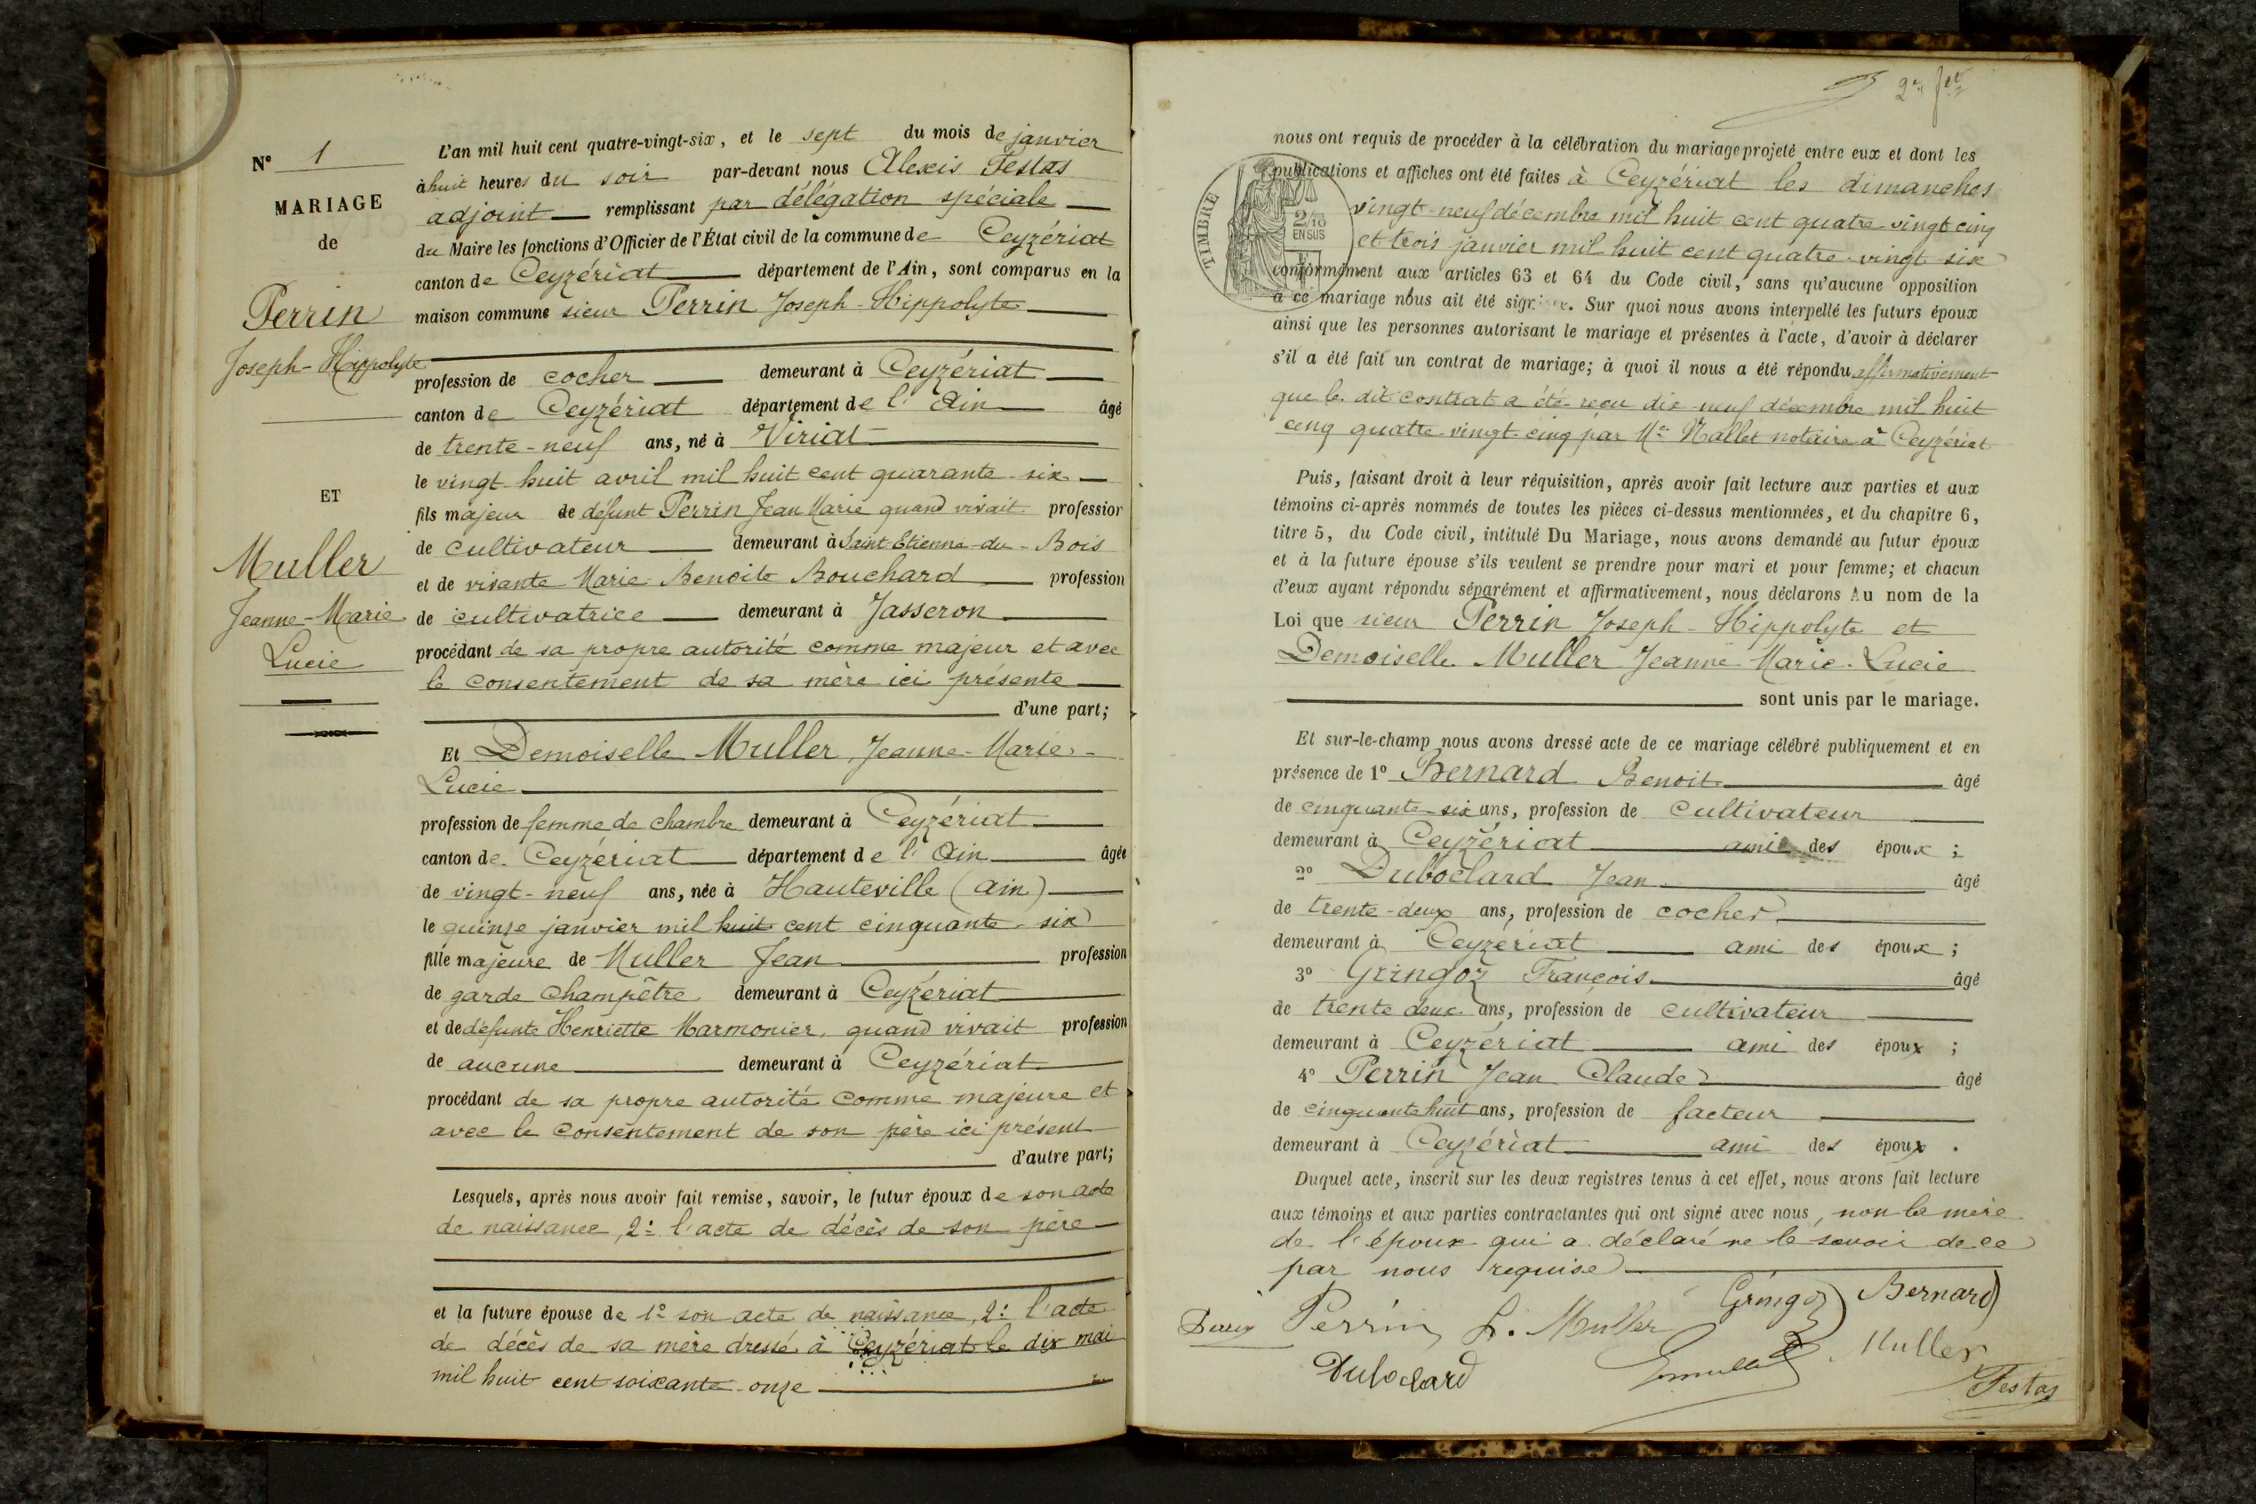 N° 1
MARIAGE
de
Perrin
Joseph-Hippolyte
ET
Muller
Jeanne-Marie
Lucie
L'an mil huit cent quatre-vingt-six, et le sept du mois de janvier
à huit heures du soir par-devant nous Alexis Festas
adjoint remplissant par délégation spéciale
du Maire les fonctions d'Officier de l'État civil de la commune de Ceyzériat
canton de Ceyzériat département de l'Ain, sont comparus en la
maison commune sieur Perrin Joseph-Hippolyte
profession de cocher demeurant à Ceyzériat
canton de Ceyzériat département de l'Ain âgé
de trente-neuf ans, né à Viriat
le vingt huit avril mil huit cent quarante-six
fils majeur de défunt Perrin Jean Marie quand vivait profession
de cultivateur demeurant à Saint Etienne-du-Bois
et de vivante Marie Benoite Bouchard profession
de cultivatrice demeurant à Jasseron
procédant de sa propre autorité comme majeur et avec
le consentement de sa mère ici présente
d'une part;
Et Demoiselle Muller Jeanne-Marie-
Lucie
profession de femme de chambre demeurant à Ceyzériat
canton de Ceyzériat département de l'Ain âgée
de vingt-neuf ans, née à Hauteville (Ain)
le quinze janvier mil huit cent cinquante-six
fille majeure de Muller Jean profession
de garde Champêtre demeurant à Ceyzériat
et de defunte Henriette Marmonier, quand vivait profession
de aucune demeurant à Ceyzériat
procédant de sa propre autorité comme majeure et
avec le consentement de son père ici présent
d'autre part;
Lesquels, après nous avoir fait remise, savoir, le futur époux de son acte
de naissance, 2° l'acte de décès de son père
et la future épouse de 1° son acte de naissance, 2° l'acte
de décès de sa mère dressé à Ceyzériat le dix mai
mil huit cent soixante-onze
nous ont requis de procéder à la célébration du mariage projeté entre eux et dont les
publications et affiches ont été faites à Ceyzériat les dimanches
vingt-neuf décembre mil huit cent quatre vingt cinq
et trois janvier mil huit cent quatre-vingt six
TIMBRE
2/10
EN SUS
conformément aux articles 63 et 64 du Code civil, sans qu'aucune opposition
à ce mariage nous ait été signifiée. Sur quoi nous avons interpellé les futurs époux
ainsi que les personnes autorisant le mariage et présentes à l'acte, d'avoir à déclarer
s'il a été fait un contrat de mariage; à quoi il nous a été répondu affirmativement
que le dit contrat a été reçu dix-neuf décembre mil huit
cenq quatre-vingt-cinq par Me Mallet notaire à Ceyzériat
Puis, faisant droit à leur réquisition, après avoir fait lecture aux parties et aux
témoins ci-après nommés de toutes les pièces ci-dessus mentionnées, et du chapitre 6,
titre 5, du Code civil, intitulé Du Mariage, nous avons demandé au futur époux
et à la future épouse s'ils veulent se prendre pour mari et pour femme; et chacun
d'eux ayant répondu séparément et affirmativement, nous déclarons Au nom de la
Loi que sieur Perrin Joseph-Hippolyte et
Demoiselle Muller Jeanne Marie-Lucie
sont unis par le mariage.
Et sur-le-champ nous avons dressé acte de ce mariage célébré publiquement et en
présence de 1° Bernard Benoit âgé
de cinquante-six ans, profession de cultivateur
demeurant à Ceyzériat ami des époux;
2° Duboclard Jean âgé
de trente-deux ans, profession de cocher
demeurant à Ceyzériat ami des époux;
3° Gringoz François âgé
de trente deux ans, profession de cultivateur
demeurant à Ceyzériat ami des époux;
4° Perrin Jean Claude âgé
de cinquante huit ans, profession de facteur
demeurant à Ceyzériat ami des époux.
Duquel acte, inscrit sur les deux registres tenus à cet effet, nous avons fait lecture
aux témoins et aux parties contractantes qui ont signé avec nous, non la mère
de l'époux qui a déclaré ne le savoir de ce
par nous requise
Gringoz Bernard
Perrin L. Muller
Muller
Duboclard
Festas